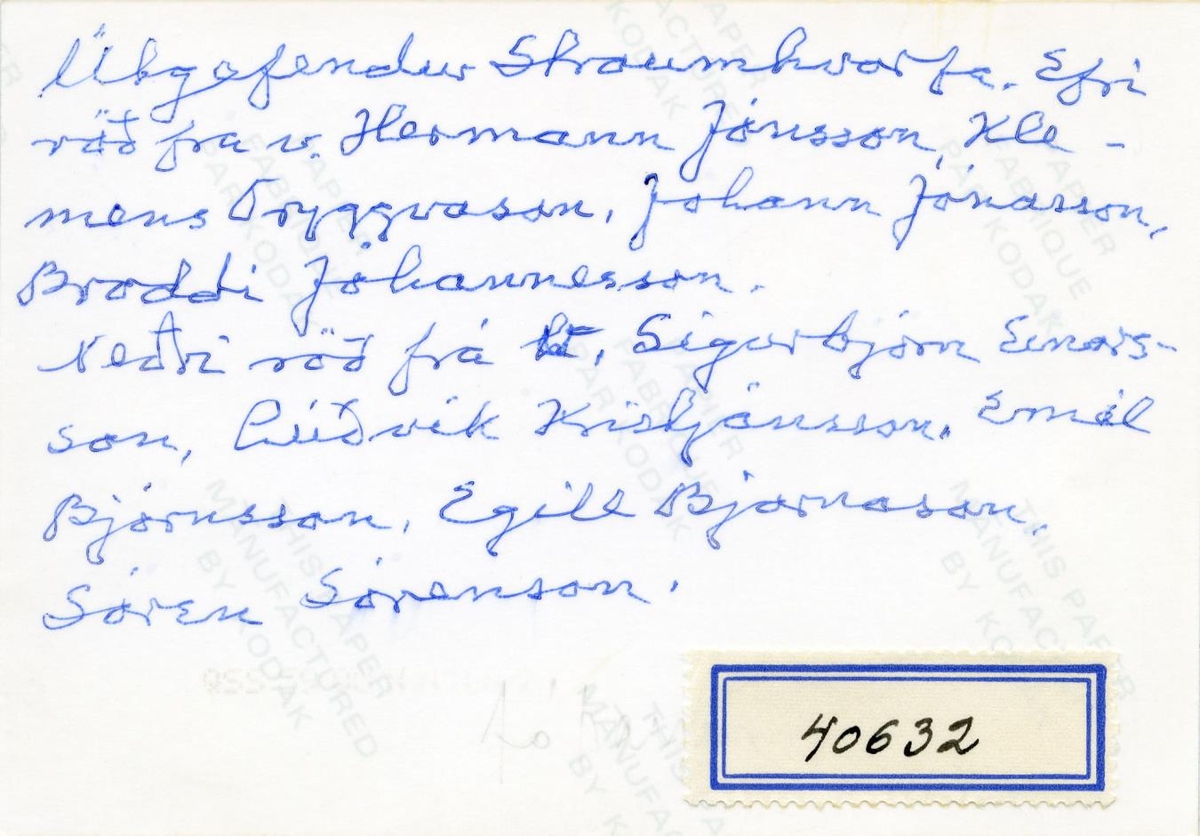 Útgefendur Straumhvarfa. Efri
röð frá v. Hermann Jónsson, Kle-
mens Tryggvason, Jóhann Jónasson,
Broddi Jóhannesson.
Neðri röð frá v. Sigurbjörn Einars-
son, Lúðvík Kristjánsson, Emil
Björnsson, Egill Bjarnason,
Sören Sörenson.
40632
THIS PAPER
MANUFACTURED
BY KODAK